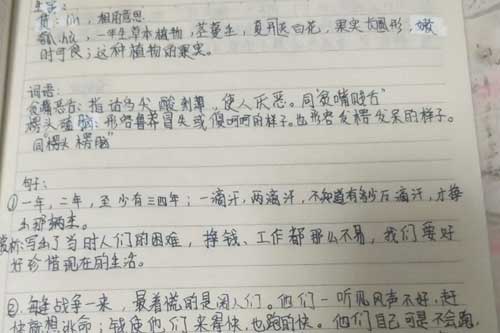 生字:
赁: lìn, 租用意思
瓠 hù, 一年生草本植物, 茎蔓生, 夏开花白花, 果实长圆形, 嫩
时可食; 这种植物的果实。
词语:
贫嘴恶舌: 指话多尖酸刻薄, 使人厌恶。同"贫嘴贱舌"
楞头磕脑: 形容鲁莽冒失或傻呵呵的样子。也形容发楞发呆的样子。
同"楞头楞脑"
句子:
①一年, 二年, 至少有三四年; 一滴汗, 两滴汗, 不知道有多少万滴汗, 才挣
出那辆车。
你写出了当时人们的困难, 挣钱、工作都那么不易, 我们要好
好珍惜现在的生活。
②. 每逢战争一来, 最着慌的是阔人们。他们一听见风声不好, 赶
快就想逃命; 钱使他们来得快, 也跑的快。他们自己可是不会跑,